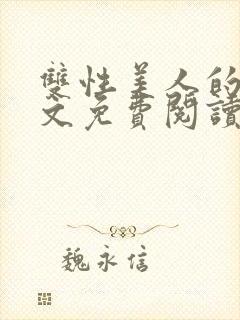 雙性美人的
文免費閱讀
魏永信